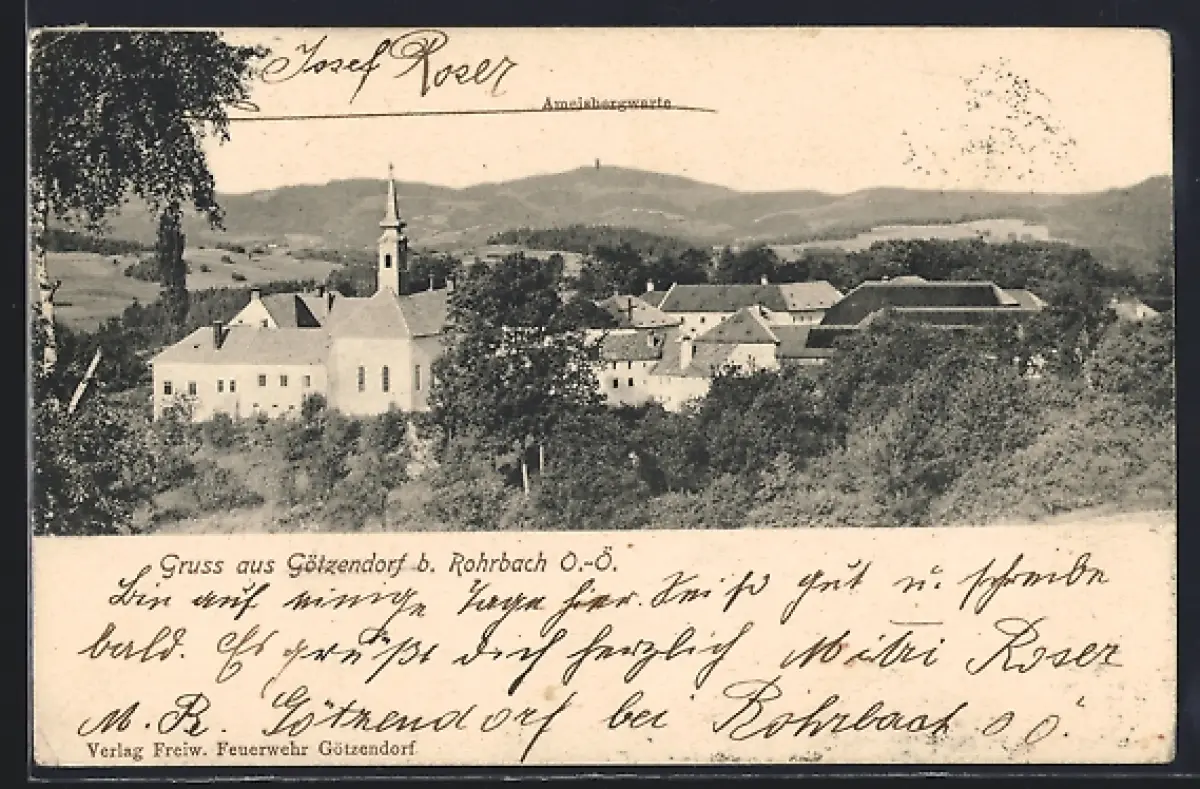 Josef Roser
Ameisbergwarte
Gruss aus Götzendorf b. Rohrbach O.-Ö.
Bin auf einige Tage hier. Sei so gut u. schreibe
bald. Es grüßt dich herzlich Mitzi Roser
M. R. Götzendorf bei Rohrbach O Ö.
Verlag Freiw. Feuerwehr Götzendorf